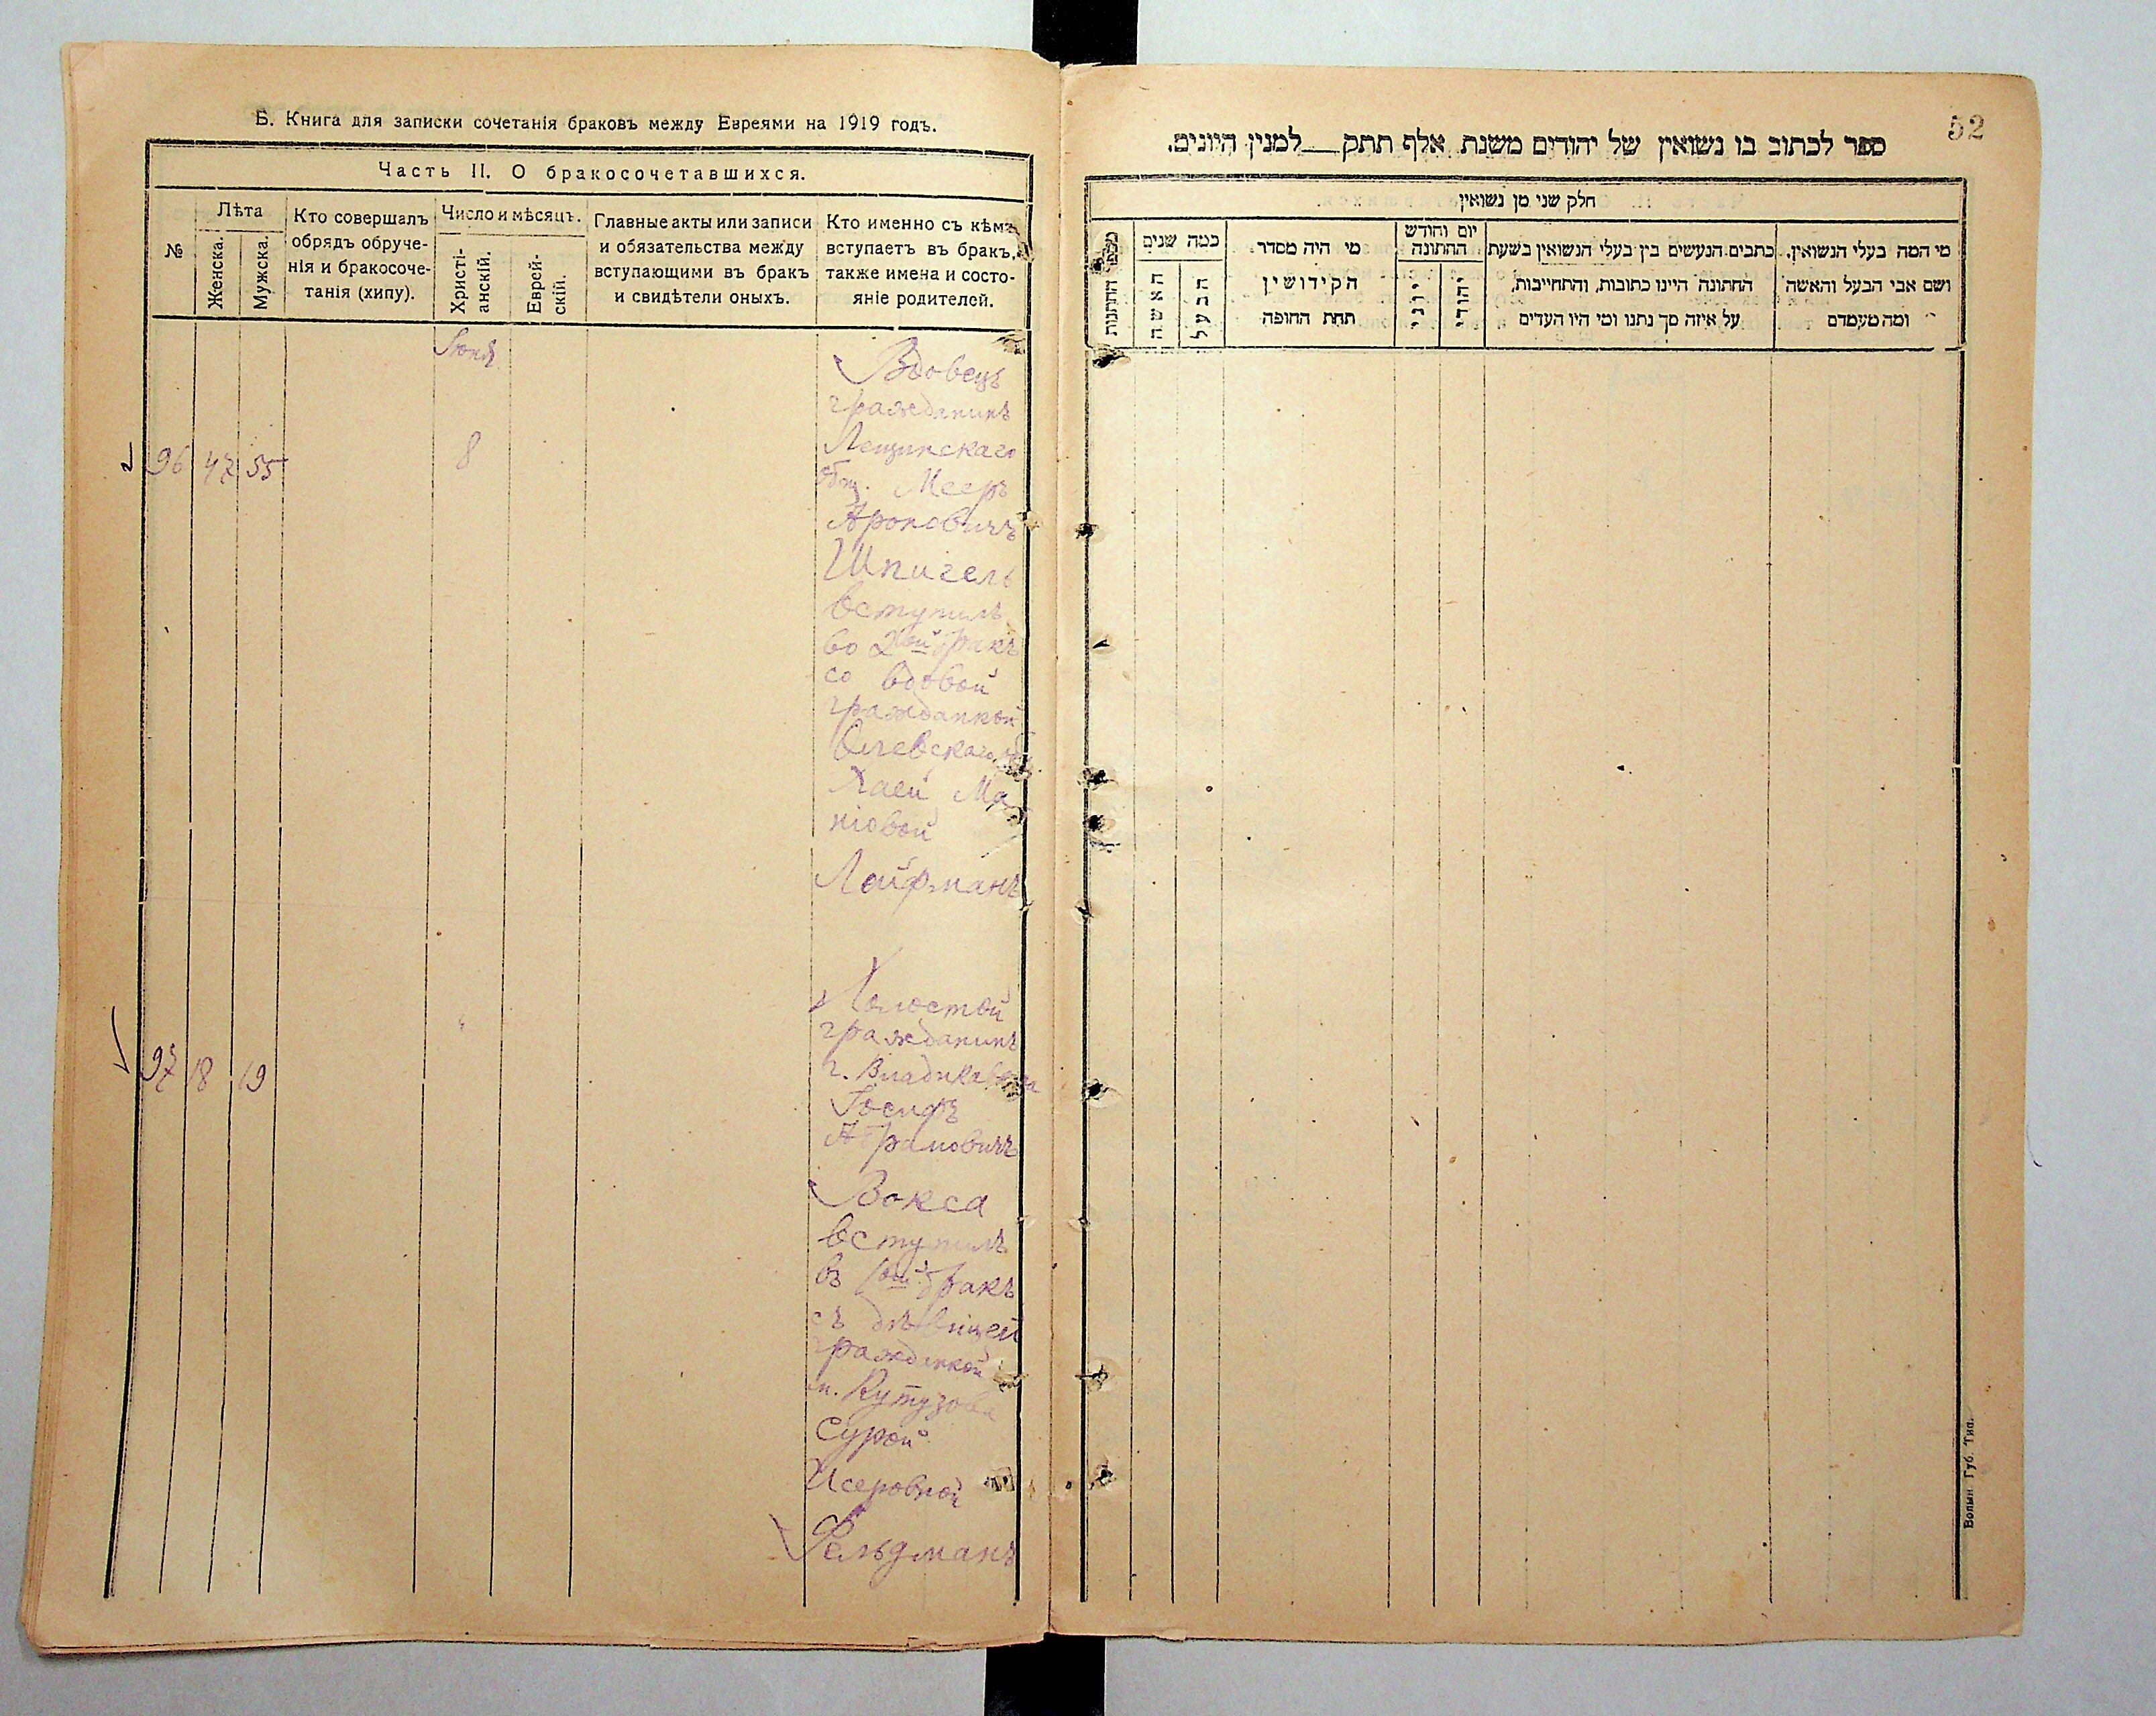 Б. Книга для записки сочетанія браковъ между Евреями на 1919 годъ.
Часть II. О бракосочетавшихся.
№
Лѣта
Женска.
Мужска.
Кто совершалъ
обрядъ обруче-
нія и бракосоче-
танія (хипу).
Число и мѣсяцъ.
Христі-
анскій.
Еврей-
скій.
Главные акты или записи
и обязательства между
вступающими въ бракъ
и свидѣтели оныхъ.
Кто именно съ кѣмъ
вступаетъ въ бракъ,
также имена и состо-
яніе родителей.
96 47 55
8
Вдовецъ
гражданинъ
Лещинскаго
общ. Мееръ
Ароновичъ
Шпигель
вступилъ
во 2ой бракъ
со вдовой
гражданкой
Олевскаго
Хаей Ма
ніовой
Лейфманъ
97 18 19
"
Холостой
гражданинъ
г. Владикавказа
Іосифъ
Абрамовичъ
Вокса
вступилъ
въ 1ый бракъ
съ дѣвицей
гражданкой
Кутузова
Сурой
Исеровной
Фельдманъ
52
ספר לכתוב בו נשואין של יהודים משנת אלף תתק — למנין היונים.
חלק שני מן נשואין
מספר החתונות
כמה שנים
האשה
הבעל
מי היה מסדר
הקידושין
תחת החופה
יום וחודש
החתונה
יוני
יהודי
כתבים הנעשים בין בעלי הנשואין בשעת
החתונה היינו כתובות, והתחייבות,
על איזה סך נתנו ומי היו העדים
מי המה בעלי הנשואין.
ושם אבי הבעל והאשה
ומה מעמדם
Волын Губ. Тип.